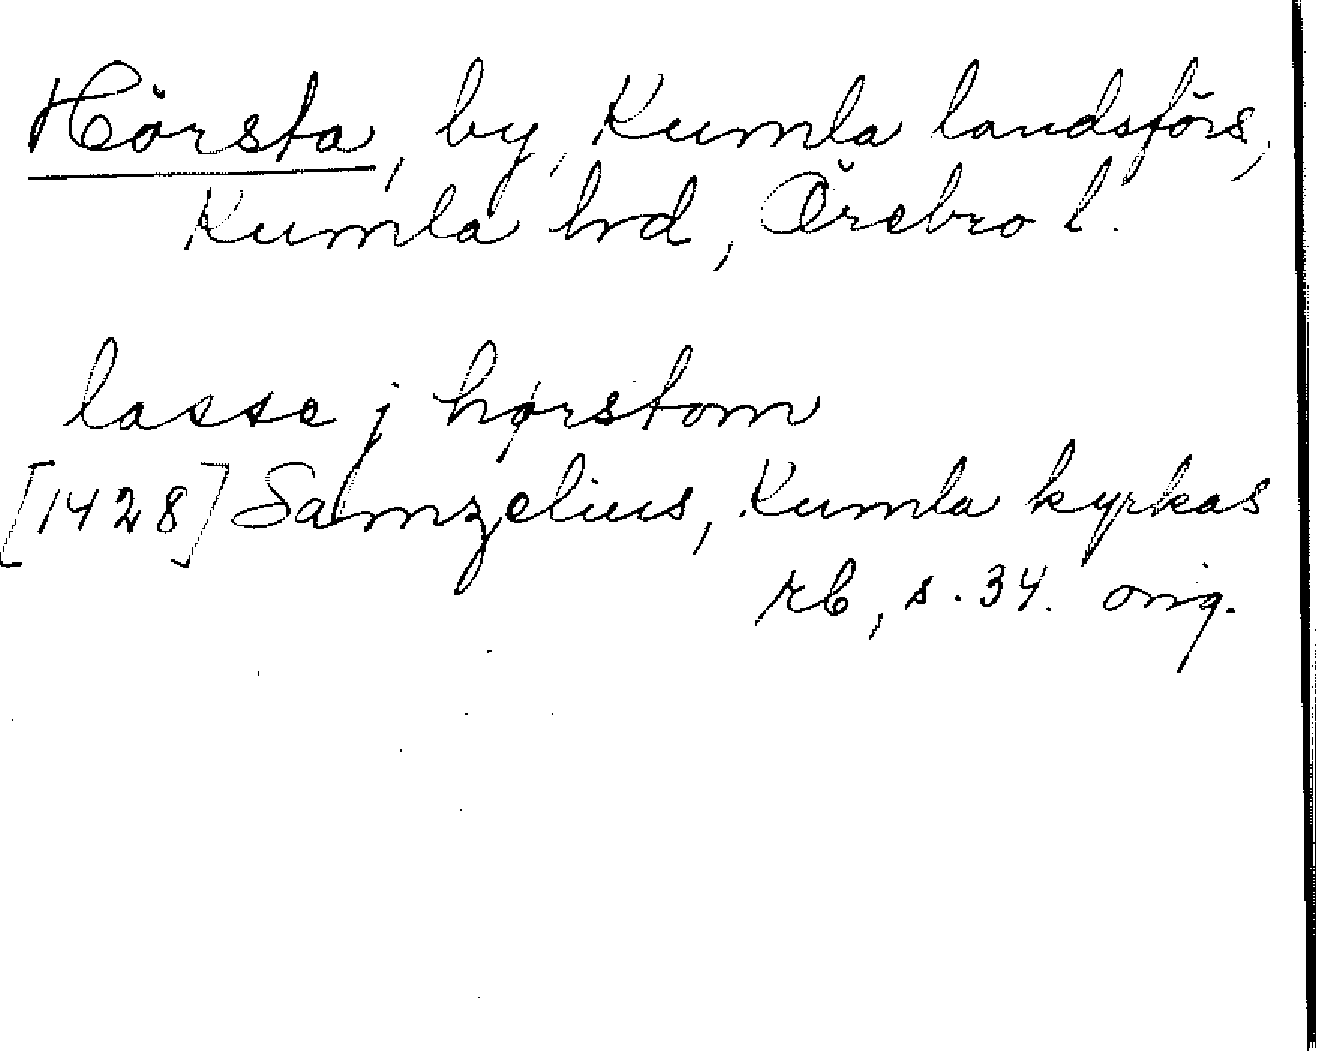 Hörsta, by, Kumla landsförs,
Kumla hrd, Örebro l.
lasse j hørstom
[1428] Samzelius, Kumla kyrkas
rb, s. 34. orig.